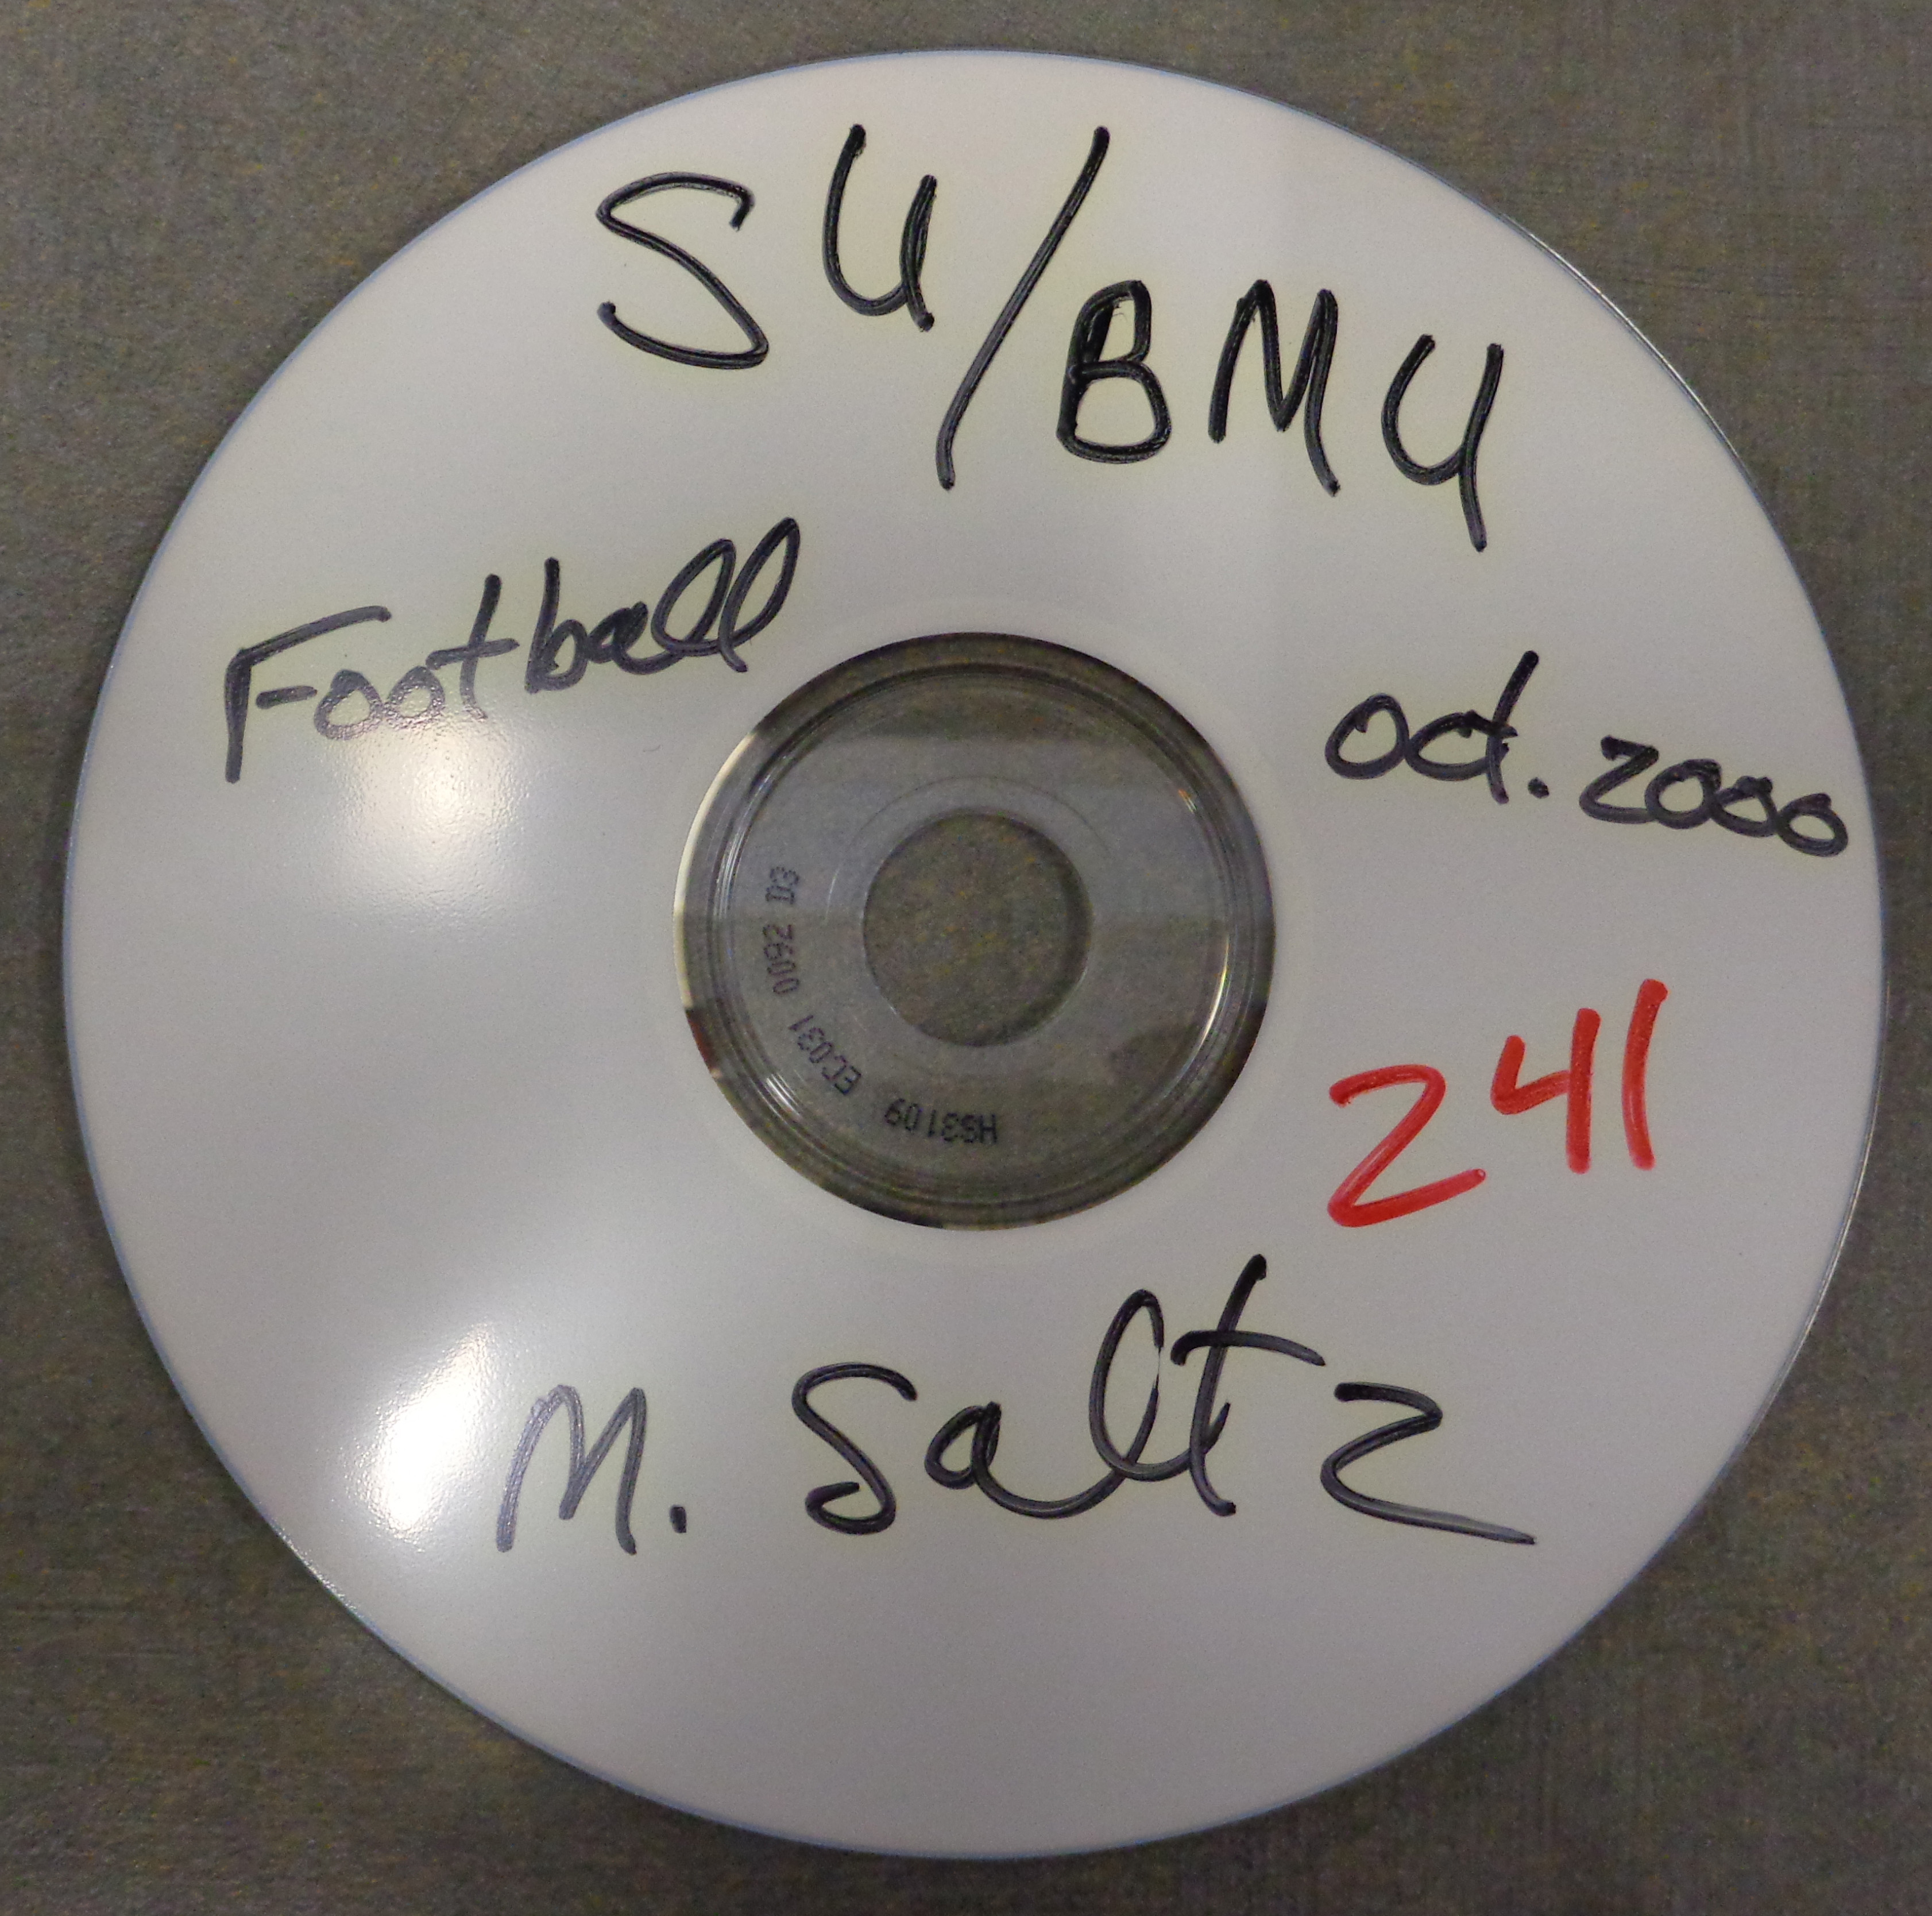 SU/BMU
Football
Oct. 2000
241
HS3109 EC031 0092 D3
M. Saltz